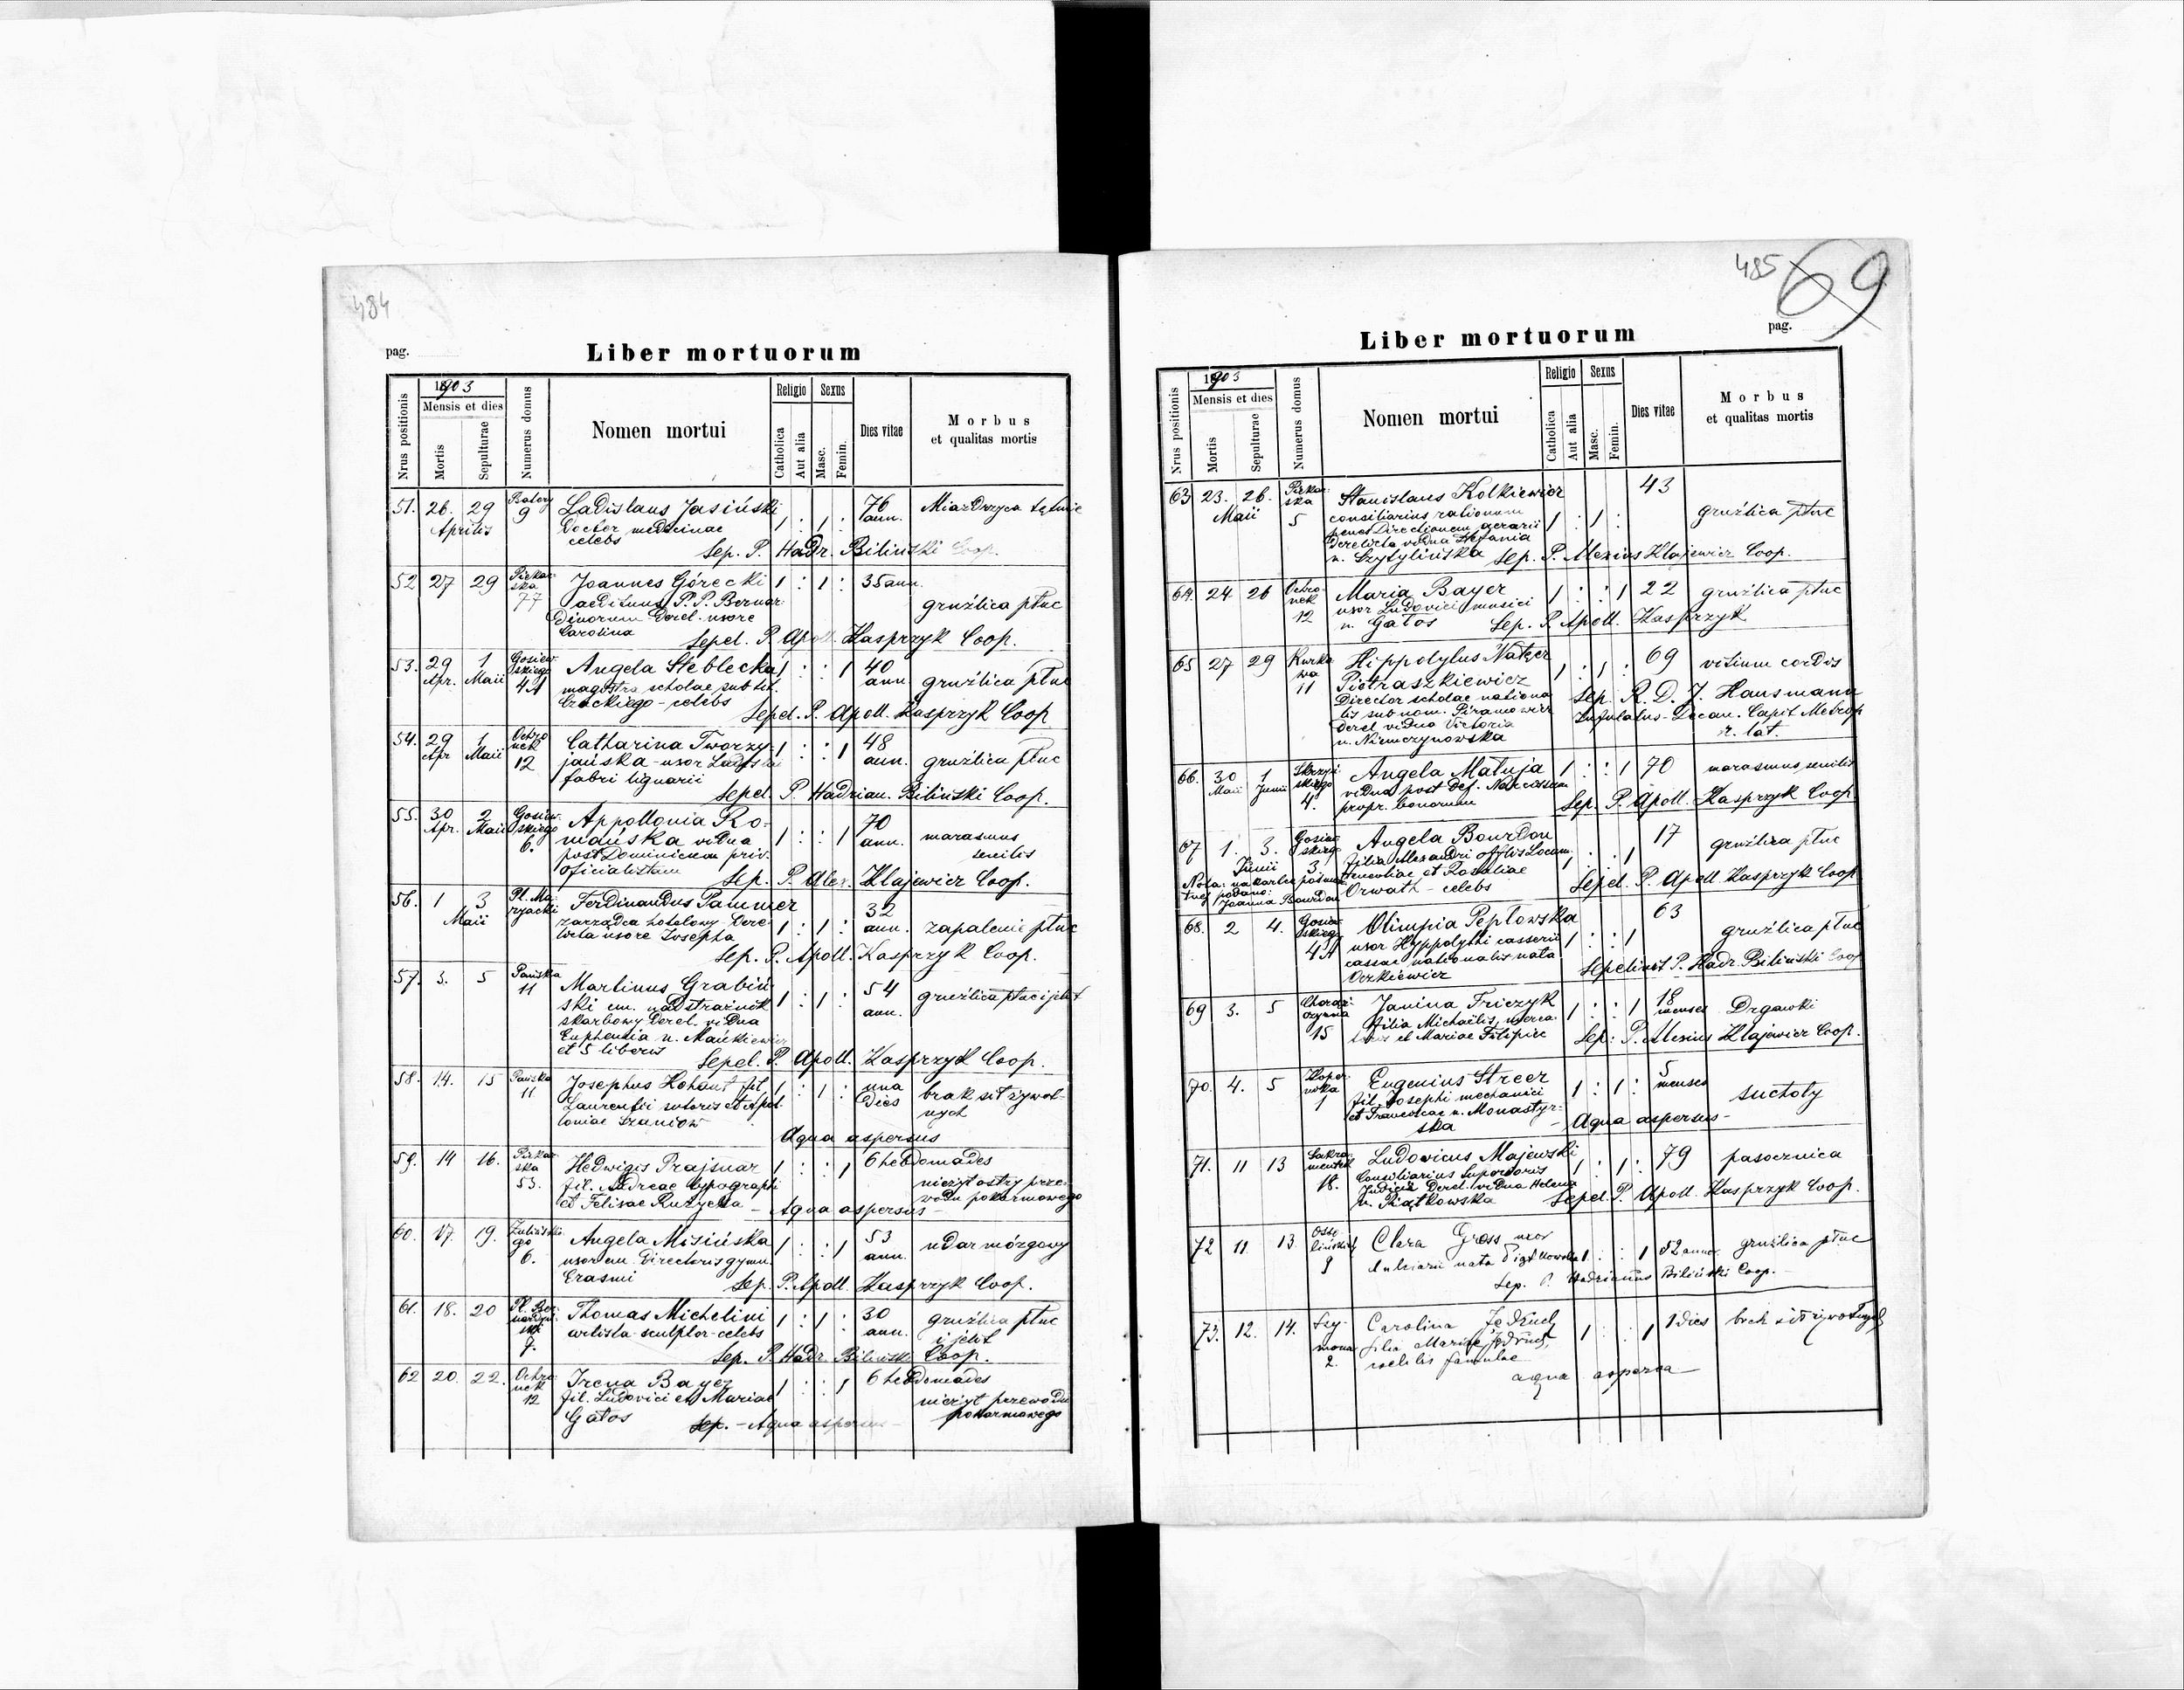 484
pag.
Liber mortuorum
Nrus positionis
1903
Mensis et dies
Mortis
Sepulturae
Numerus domus
Nomen mortui
Religio
Catholica
Aut alia
Sexus
Masc.
Femin.
Dies vitae
Morbus
et qualitas mortis
51. 26. 29 Batory Ladislaus Jasiński 76 Miażdżyca tętnic
Aprilis 9 Doctor medicinae 1 : 1 : ann.
celebs
Sep. P. Hadr. Biliński Coop.
52 27 29 Piekar Joannes Górecki 1 : 1 : 35 ann.
ska aedituus P. P. Bernar gruźlica płuc
77 dinorum derel. uxore
Carolina
Sepel. P. Apoll. Kasprzyk Coop.
53. 29 1 Gosiew Angela Steblecka 1 : : 1 40
Apr. Maii skiego magistra scholae sub tit. ann. gruźlica płuc
4A Czackiego - celebs
Sepel. P. Apoll. Kasprzyk Coop
54. 29 1 Ochro Catharina Tworzy- 1 : : 1 48
Apr Maii nek jańska - uxor Ladisla ann. gruźlica płuc
12 fabri lignarii
Sepel. P. Hadrian. Biliński Coop.
55. 30 2 Gosiew Appollonia Ro- 70
Apr. Maii skiego mańska vidua 1 : : 1 ann. marasmus
6. post Dominicum priv. senilis
oficialistam
Sep. P. Alex. Klajewicz Coop.
56. 1 3 Pl. Ma Ferdinandus Pammer 32
Maii ryacki zarządca hotelowy dere- 1 : 1 : ann. zapalenie płuc
licta uxore Josepha
Sep. P. Apoll. Kasprzyk Coop.
57. 3. 5 Pańska Martinus Grabiń 54
11 ski em. nadstrażnik 1 : 1 : ann. gruźlica płuc i jelit
skarbowy derel. vidua
Euphemia n. Mańkiewicz
et 5 liberis
Sepel. P. Apoll. Kasprzyk Coop.
58. 14. 15 Pańska Josephus Kohaut fil. 1 : 1 : una brak sił żywot-
11 Laurentii sutoris et Apol dies nych
loniae
Aqua aspersus
59. 14 16. Piekar Hedwigis Prajsnar 1 : : 1 6 hebdomades
ska fil. Andreae typographi nieżyt ostry prze-
53. et Felixae Rużycka wodu pokarmowego
- Aqua aspersus -
60. 17. 19. Zulińskie Angela Misińska 1 : : 1 53
go uxor em. Directoris gymn. ann. udar mózgowy
6. Erasmi
Sep. P. Apoll. Kasprzyk Coop.
61. 18. 20 Pl. Ber Thomas Michelini 1 : 1 : 30 gruźlica płuc
nardyń artista-sculptor-celebs ann. i jelit
ski 7.
Sep. P. Hadr. Biliński Coop.
62 20. 22. Ochro Irena Bayer 1 : : 1 6 hebdomades
nek fil. Ludovici et Mariae nieżyt przewodu
12 Gatos pokarmowego
Sep. - Aqua aspersus -
485
69
pag.
Liber mortuorum
Nrus positionis
1903
Mensis et dies
Mortis
Sepulturae
Numerus domus
Nomen mortui
Religio
Catholica
Aut alia
Sexus
Masc.
Femin.
Dies vitae
Morbus
et qualitas mortis
63 23. 26. Piekar Stanislaus Kolkiewicz 43
Maii ska consiliarius rationum 1 : 1 : gruźlica płuc
5 penes Directionem aerarii
derelicta vidua Stefania
n.
Sep. P. Alexius Klajewicz Coop.
64. 24 26 Ochro Maria Bayer 1 : : 1 22 gruźlica płuc
nek uxor Ludovici musici
12 n. Gatos
Sep. P. Apoll. Kasprzyk
65 27 29 Kurko Hippolytus Natęcz 69
wa Piotraszkiewicz 1 : 1 : vitium cordis
11 Director scholae nationa Sep. R. D. J. Hausmann
lis sub nom. Piramowicz Infulatus-Decan. Capit Metrop
derel vidua Victoria r. lat.
n. Niemczynowska
66. 30 1 Skrzyń Angela Matuja 1 : : 1 70 marasmus senilis
Maii Junii skiego vidua post def. Narcissum
4. propr. bonorum
Sep. P. Apoll. Kasprzyk Coop
67 1. 3. Gosiew Angela Bourdon 17 gruźlica płuc
Junii skiego filia Alexandri offlis Locum 1 : : 1
3 tenentiae et Rosaliae
Orwath - celebs
Sepel. P. Apoll. Kasprzyk Coop
Nota: na kartce pośmier
tnej podano:
Joanna Bourdon
68. 2 4. Gosiew Olimpia Peptowska 63
skiego uxor Hyppolythi casserii 1 : : 1 gruźlica płuc
4A cassae nationalis nata
Oczkiewicz
Sepelivit P. Hadr. Biliński Coop
69 3. 5 Chorąż Janina Friczyk 1 : : 1 18 Drgawki
czyzna filia Michaëlis merca menses
15 toris et Mariae Filipiec
Sep. P. Alexius Klajewicz Coop.
70. 4. 5 Koper Eugenius Streer 1 : 1 : 5
nika fil. Josephi mechanici menses suchoty
1 et Franciscae n. Monastyr-
ska
- Aqua aspersus -
71. 11 13 Sakra Ludovicus Majewski 79 pasocznica
mentek Consiliarius Superioris 1 : 1 :
18. Judicii derel. vidua Helena
n. Kiątkowska
Sepel. P. Apoll. Kasprzyk Coop.
72 11 13. Osso Clara Gross uxor 1 : : 1 52 ann. gruźlica płuc
lińskich
9
Sep. P. Hadrianus Biliński Coop.
73. 12. 14. Szy- Carolina Jedruch 1 : : 1 1 dies brak sił żywotnych
mona filia Mariae Jedruch
2. coelibis famulae
aqua aspersa